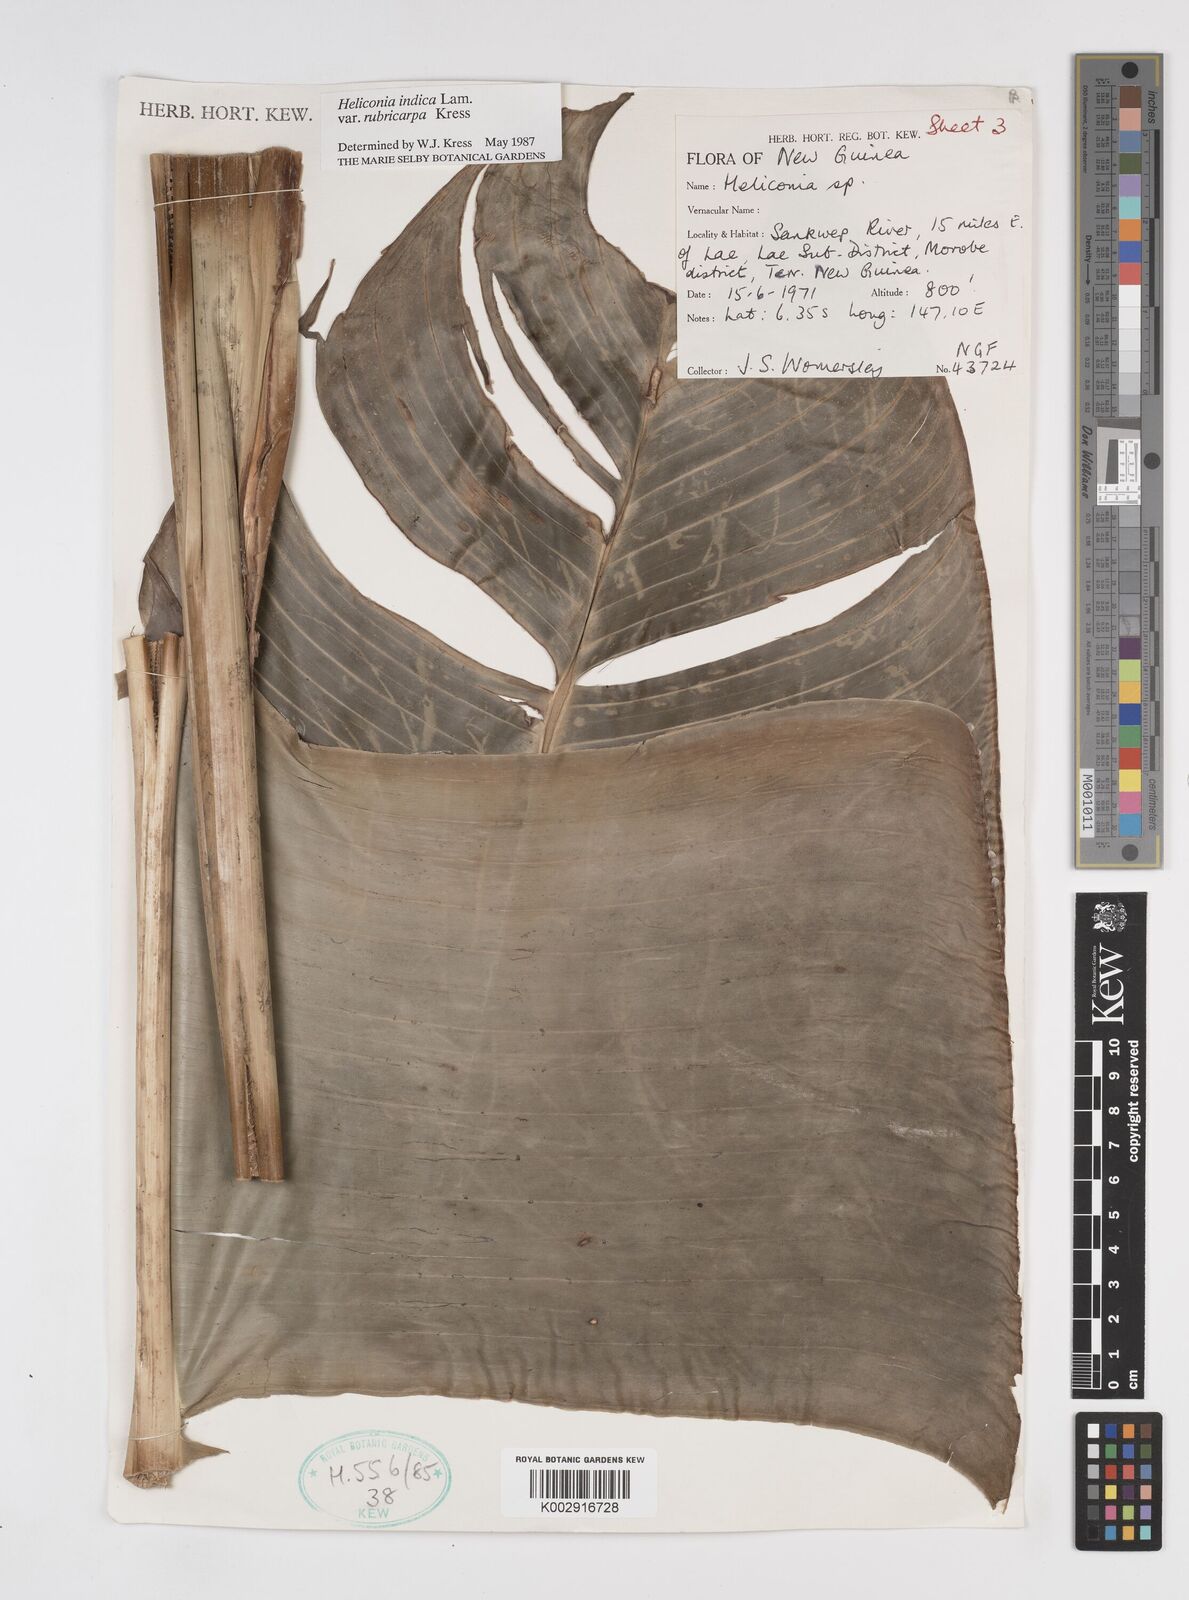 HERB. HORT. KEW.
Heliconia indica Lam.
var. rubricarpa Kress
Determined by W.J. Kress May 1987
THE MARIE SELBY BOTANICAL GARDENS
HERB. HORT. REG. BOT. KEW. Sheet 3
FLORA OF New Guinea
Name : Heliconia sp.
Vernacular Name :
Locality & Habitat : Sankwep River, 15 miles E.
of Lae, Lae Sub-District, Morobe
district, Terr. New Guinea.
Date : 15-6-1971 Altitude : 800'
Notes : Lat: 6.35s Long: 147.10E
NGF
Collector : J. S. Womersley No. 43724
ROYAL BOTANIC GARDENS
H.556/85
38
KEW
ROYAL BOTANIC GARDENS KEW
K002916728
inches
Don Williams
M001011
centimeters
Royal Botanic Gardens
Kew
0 1 2 3 4 5 6 7 8 9 10
cm
copyright reserved